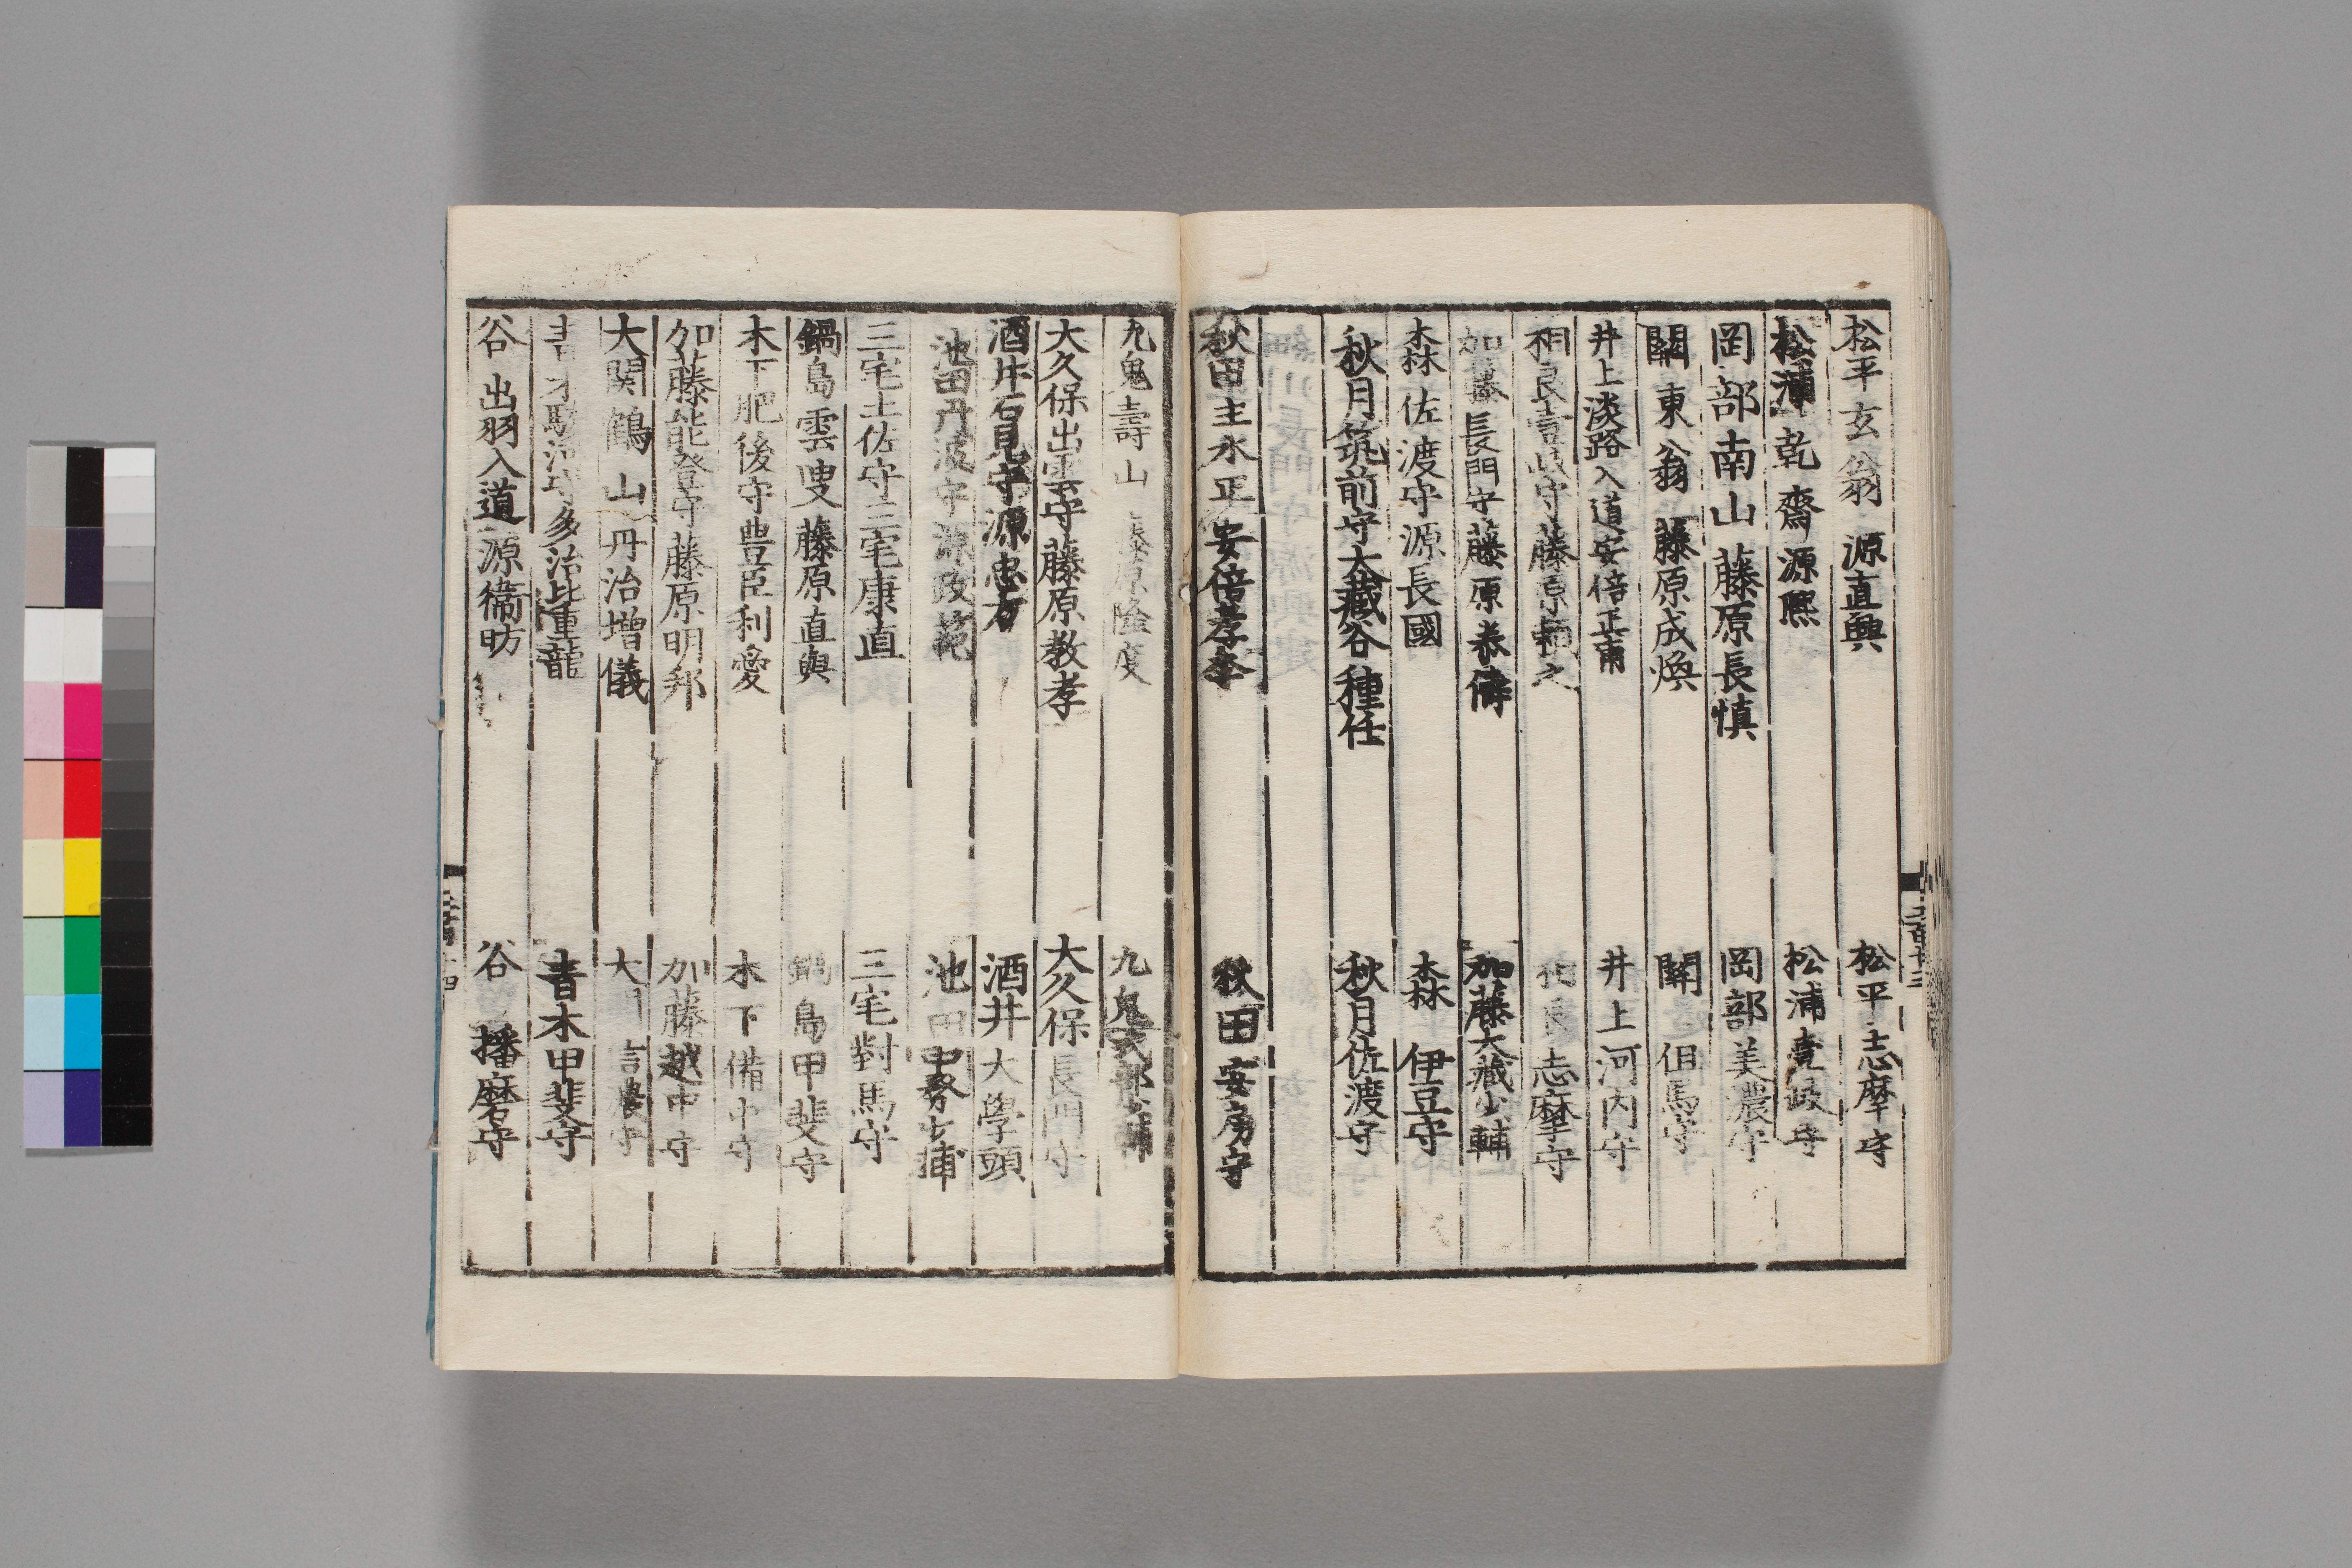 松平玄翁 源直興 松平志摩守
松浦乾齋 源熈 松浦壹岐守
岡部南山 藤原長慎 岡部美濃守
關東翁 藤原成煥 關 但馬守
井上淡路入道安倍正甫 井上河内守
相良壹岐守藤原 之 相良志摩守
加藤長門守藤原泰儔 加藤大藏少輔
森佐渡守源長國 森 伊豆守
秋月筑前守大藏谷種任 秋月佐渡守
秋田主水正安倍孝季 秋田安房守
九鬼壽山 藤原隆度 九鬼式部少輔
大久保出雲守藤原教孝 大久保長門守
酒井石見守源忠方 酒井大學頭
池田丹波守源政範 池田中務少輔
三宅土佐守三宅康直 三宅對馬守
鍋島雲叟藤原直與 鍋島甲斐守
木下肥後守豊臣利愛 木下備中守
加藤能登守藤原明邦 加藤越中守
大関鶴山丹治增儀 大 信濃守
青木駿河守多治比重龍 青木甲斐守
谷 出羽入道 源衞昉 谷 播磨守